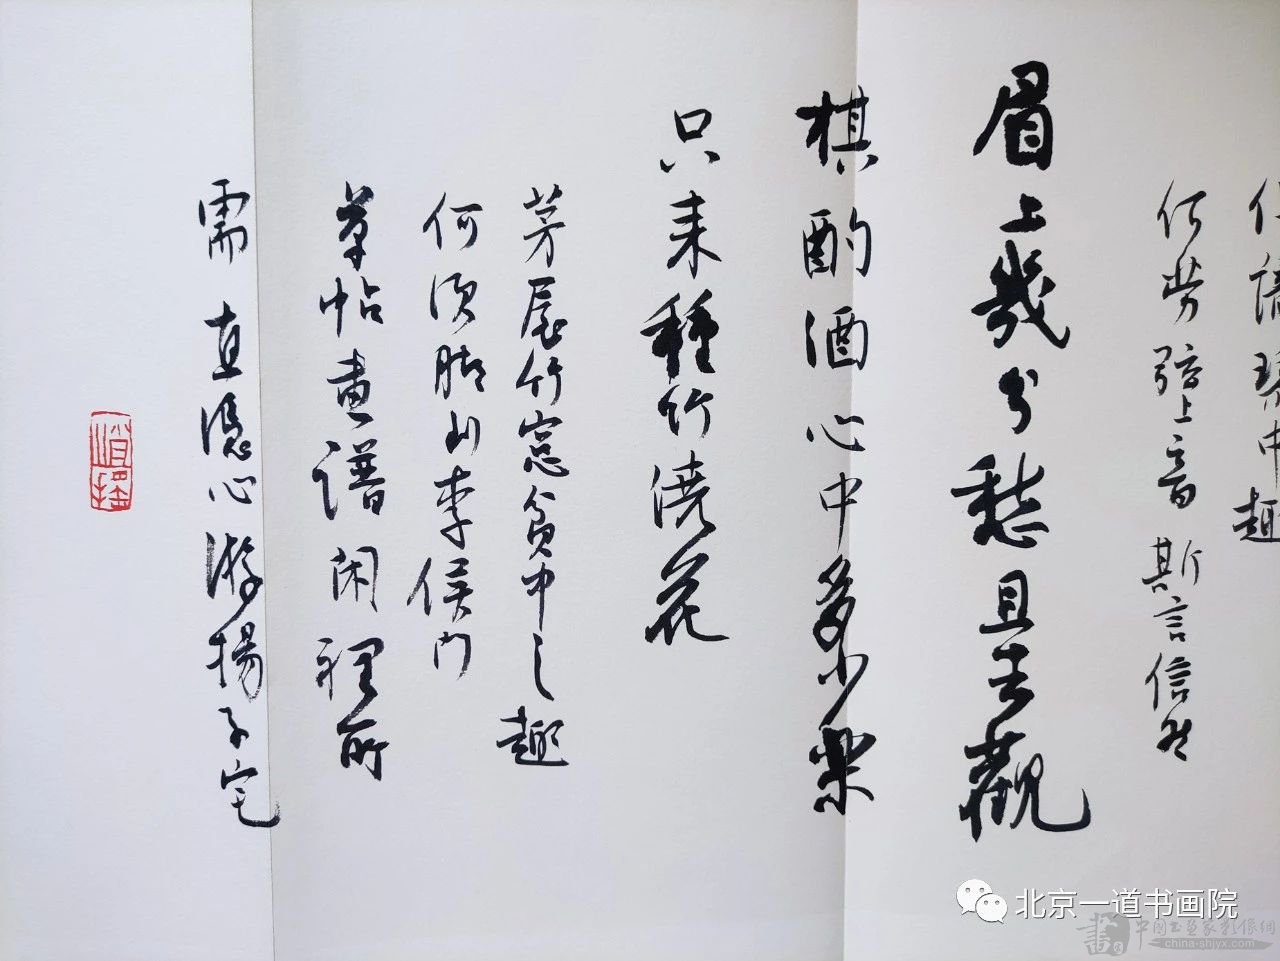 但識琴中趣
何勞弦上音 斯言信然
眉上幾分愁且去觀
棋酌酒心中多少樂
只来種竹澆花
茅屋竹窓貧中之趣
何須脚到李侯門
草帖畫譜閑裡所
需 直憑心游揚子宅
北京一道书画院
中国书画家影像网
china-shjyx.com